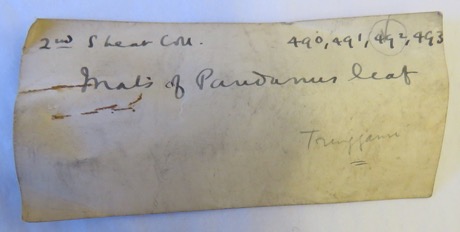 2nd Skeat Coll. 490, 491, 492, 493
Mats of Pandanus leaf
Trengganu